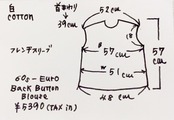 白
COTTON
首まわり
39cm
52cm
18
フレンチスリーブ
B
57cm
W
51cm
57
cm
48cm
60s-Euro
Back Button
Blouse
¥5390 (TAX in)